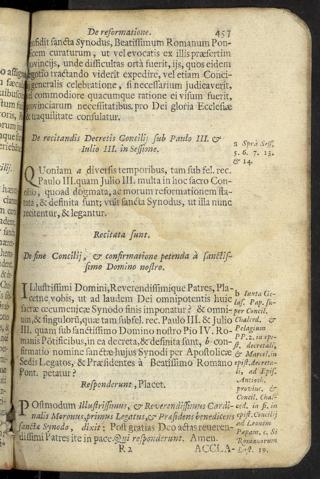 De reformatione. 457
confidit sancta Synodus, Beatissimum Romanum Pon-
ficem curaturum, ut vel evocatis ex illis præsertim
provincijs, unde difficultas orta fuerit, ijs, quos eidem
negotio tractando viderit expedire, vel etiam Conci-
generalis celebratione, si necessarium judicaverit,
commodiore quacumque ratione ei visum fuerit,
provinciarum necessitatibus, pro Dei gloria Ecclesiæ
tranquilitate consulatur.
De recitandis Decretis Concilij sub Paulo III. &
Iulio III. in Sessione.
a Sprà Sess.
5. 6. 7. 13.
& 14.
QUoniam a diversis temporibus, tam sub fel. rec.
Paulo III. quam Julio III. multa in hoc sacro Con-
cilio, quoad dogmata, ac morum reformationem sta-
tuta, & definita sunt; vult sancta Synodus, ut illa nunc
recitentur, & legantur.
Recitata sunt.
De fine Concilij, & confirmatione petenda à sanctis-
simo Domino nostro.
ILlustrissimi Domini, Reverendissimique Patres, Pla-
cetne vobis, ut ad laudem Dei omnipotentis huic
sacræ œcumenicæ Synodo finis imponatur? & omni-
um, & singulorū, quæ tam sub fel. rec. Paulo III. & Julio
III. quam sub sanctissimo Domino nostro Pio IV. Ro-
manis Pōtificibus, in ea decreta, & definita sunt, b con-
firmatio nomine sanctæ hujus Synodi per Apostolicæ
Sedis Legatos, & Præsidentes à Beatissimo Romano
Pont. petatur?
Responderunt, Placet.
POstmodum Illustrissimus, & Reverendissimus Cardi-
nalis Moronus, primus Legatus, & Præsidens benedicens
sanctæ Synodo, dixit; Post gratias Deo actas reveren-
dissimi Patres ite in pace. Qui responderunt. Amen.
b Iuxta Ge-
las. Pap. su-
per Concil.
Chalced. &
Pelagium
PP. 2. in epi-
st. decretali,
& Marcel. in
epist. decreta-
li ad Epis.
Antioch.
provinc. &
Concil. Chal-
ced. in fi. in
epist. Concilij
ad Leonem
Papam. c. Si
Romanorum
dist. 19.
R 2 ACCLA-